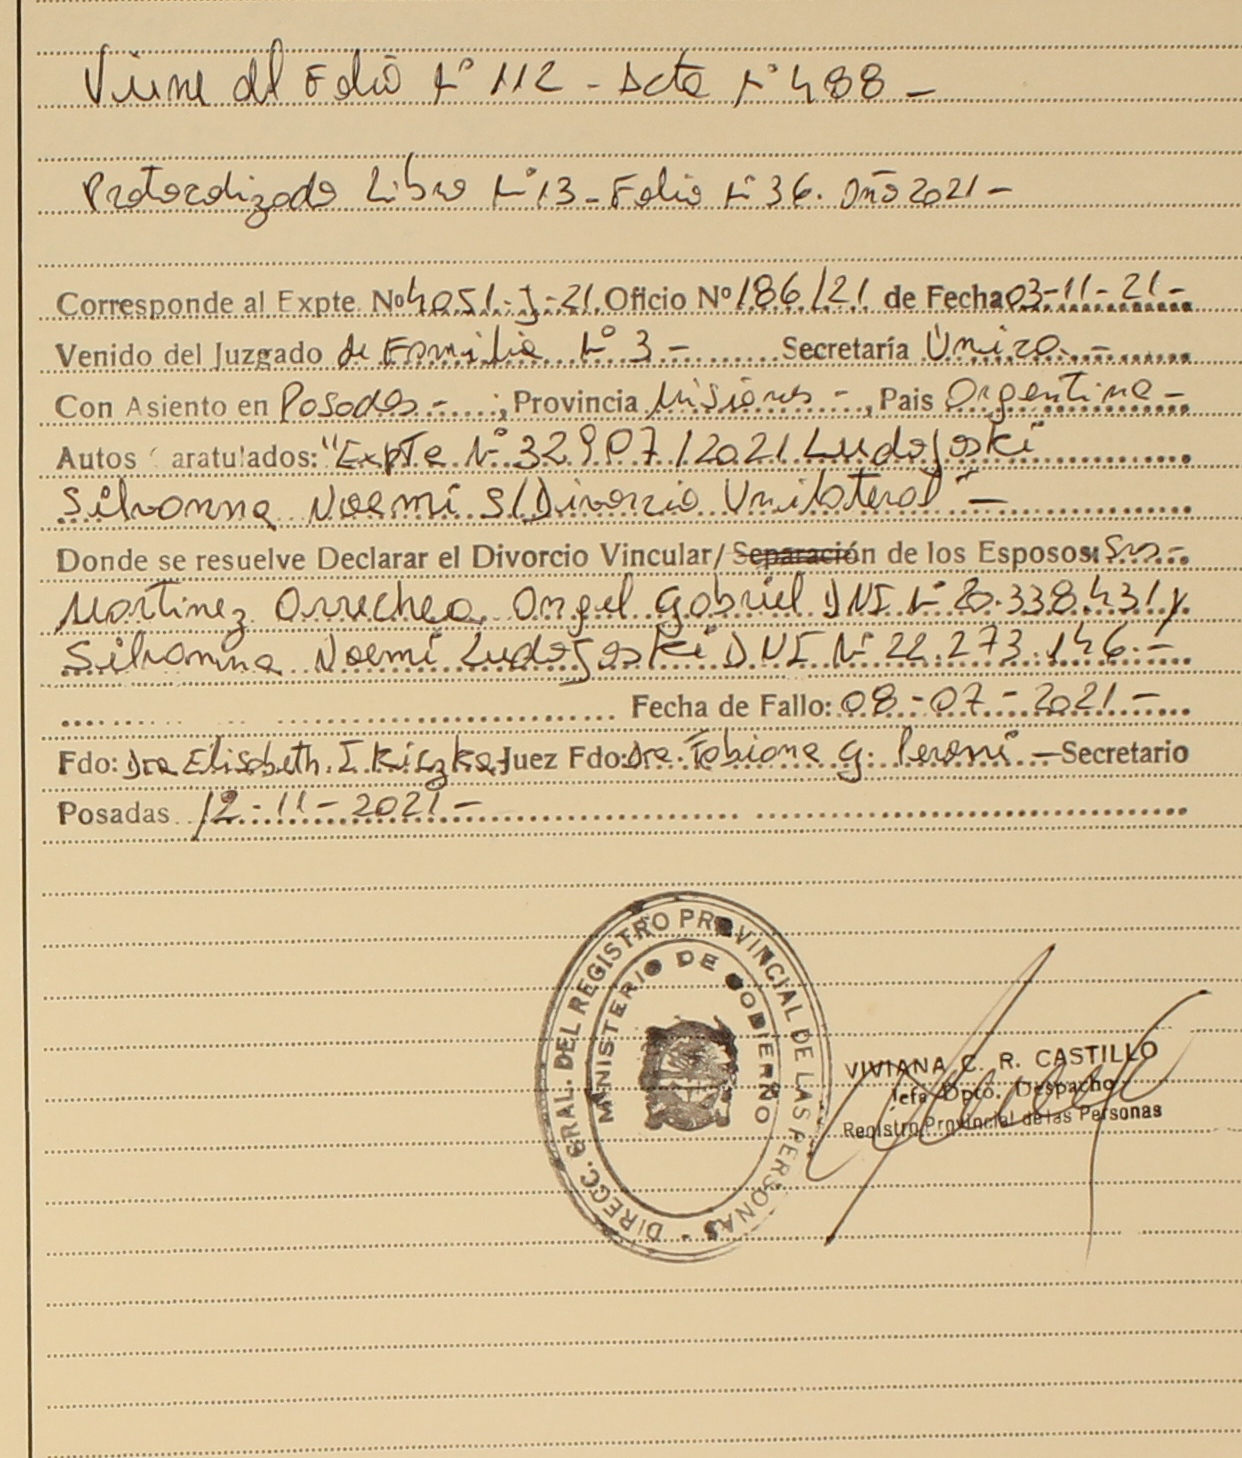 Viene del Folio N° 112 - Acta N° 488 -
Protocolizado Libro N° 13 - Folio N° 36. Año 2021 -
Corresponde al Expte. Nº 4051-J-21. Oficio Nº 186/21 de Fecha 03-11-21-
Venido del Juzgado de Familia N° 3 - Secretaría Única -
Con Asiento en Posadas - ; Provincia Misiones - , Pais Argentina -
Autos Caratulados: "Expte N° 32907/2021 Ludojoski
Silvanna Noemí S/Divorcio Unilateral" -
Donde se resuelve Declarar el Divorcio Vincular/ Separación de los Esposos: Srs -
Martinez Arrechea Angel Gabriel DNI N° 20.338.431 y
Silvanna Noemí Ludojoski DNI N° 22.273.146 -
Fecha de Fallo: 08-07-2021 -
Fdo: Dra Elisabeth I. Kiczka - Juez Fdo: Dra. Fabiana G. Peroni - Secretario
Posadas 12-11-2021 -
DIRECC. GRAL. DEL REGISTRO PROVINCIAL DE LAS PERSONAS
MINISTERIO DE GOBIERNO
VIVIANA C. R. CASTILLO
Jefa Dpto. Despacho
Registro Provincial de las Personas